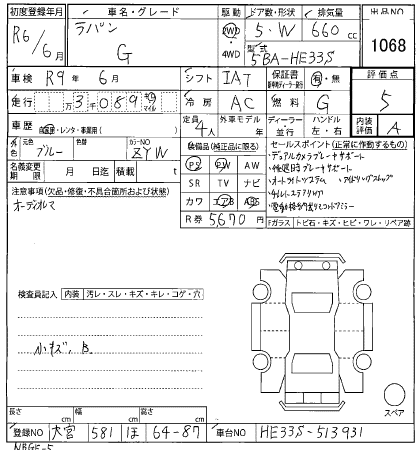 初度登録年月 車名・グレード 駆動 ドア数・形状 排気量 出品NO
R6/6月 ラパン G 2WD・4WD 5・W 660cc 1068
型式 5BA-HE33S
車検 R9年6月 シフト IAT 保証書 有・無 評価点
走行 万3千089 km マイル 冷房 AC 燃料 G 5
車歴 自家用・レンタ・事業用( ) 定員 4人 外車モデル ディーラー・並行 ハンドル 左・右 内装評価 A
外色 元色 ブルー 色替 カラーNO ZYW
装備品(純正品に限る) セールスポイント(正常に作動するもの)
名義変更期限 月 日迄 積載 t
PS PW AW
・デュアルカメラブレーキサポート
SR TV ナビ
・後退時ブレーキサポート
カワ エアB ABS
・オートライトシステム ・アイドリングストップ
・チルトステアリング
注意事項(欠品・修復・不具合箇所および状態)
オーディオレス
R券 5670円
・電動格納式リモコンドアミラー
Fガラス トビ石・キズ・ヒビ・ワレ・リペア跡
検査員記入 内装 汚レ・スレ・キズ・キレ・コゲ・穴
小キズ、B.
スペア
長さ cm 幅 cm 高さ cm
登録NO 大宮 581 ほ 64-87 車台NO HE33S-513931